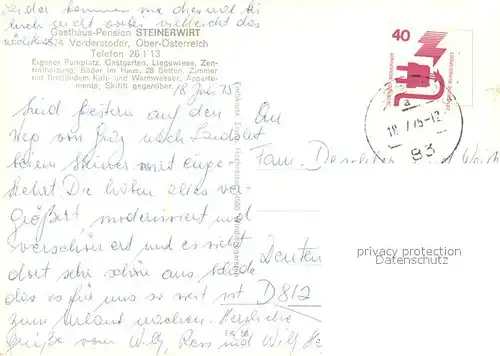 Leider kommen wir dies mal bei
Euch nicht vorbei vielleicht das
nächstemal
Gasthaus-Pension STEINERWIRT
4574 Vorderstoder, Ober-Österreich
Telefon 26 1 13
Eigener Parkplatz, Gastgarten, Liegewiese, Zen-
tralheizung; Bäder im Haus, 28 Betten, Zimmer
mit fließendem Kalt- und Warmwasser, Apparte-
ments, Skilift gegenüber.
18 Juli 75
Sind gestern auf dem
Weg von Graz nach Landshut
beim Steiner wirt einge
kehrt. Die haben alles ver-
größert modernisiert und
verschönert und es sieht
dort sehr schön aus. Schade
das es für uns so weit ist
zum Urlaub machen. Herzliche
Grüße vom Willy, Ress und Willy
An
Fam.
D 812
40
DEUTSCHE BUNDESPOST
93
privacy protection
Datenschutz